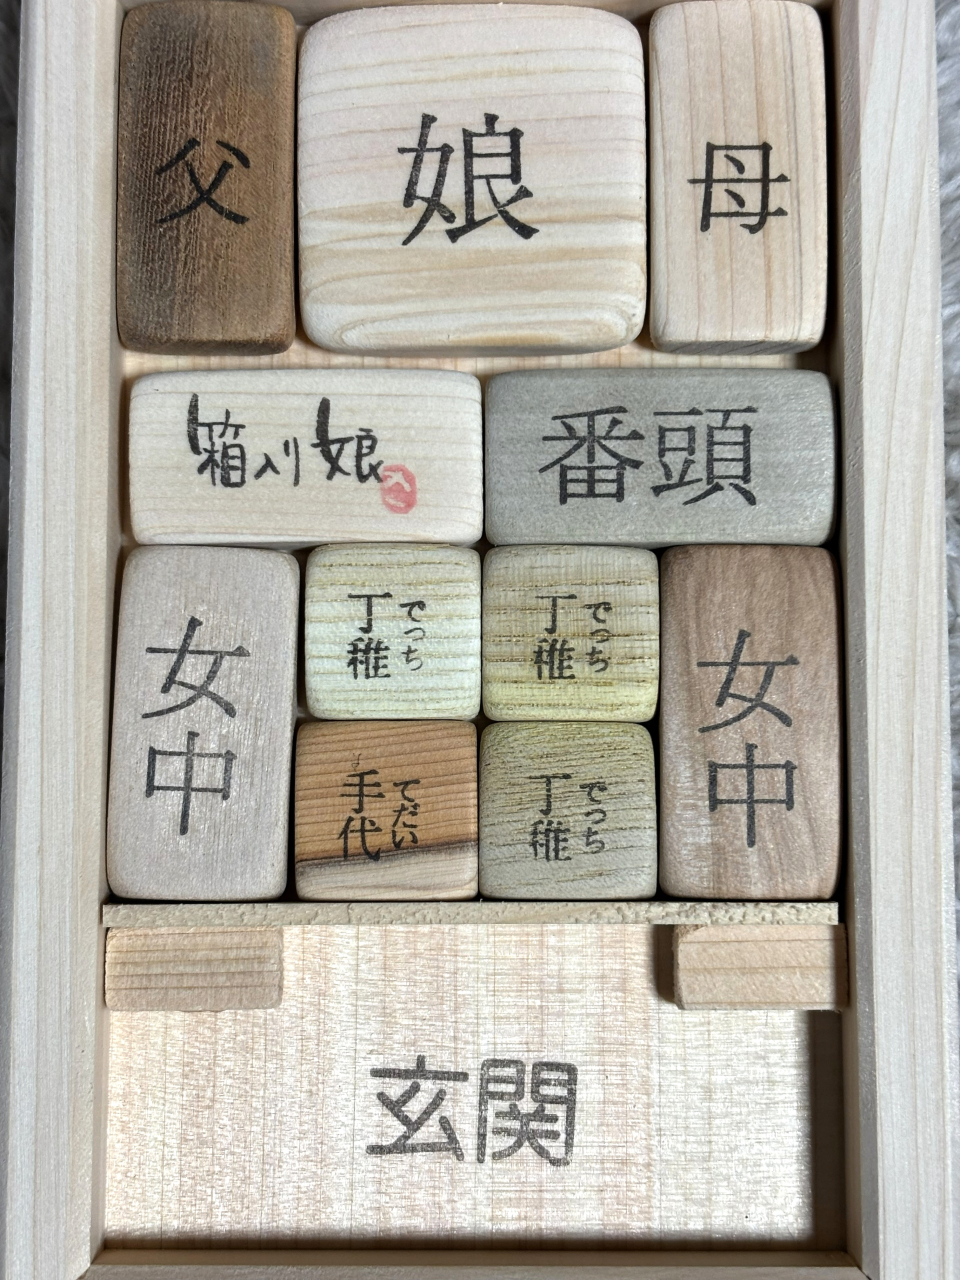 父
娘
母
箱入り娘
番頭
女中
丁稚
でっち
丁稚
でっち
女中
手代
てだい
丁稚
でっち
玄関